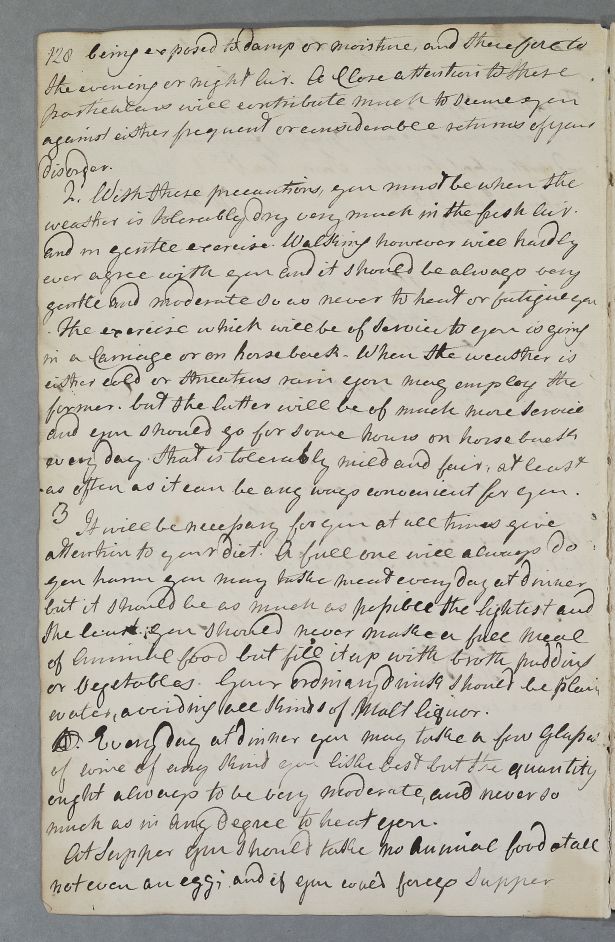 128 being exposed to damp or moisture, and therefore to
the evening or night air. A Close attention to these
particulars will contribute much to secure you
against either frequent or considerable returns of your
disorder.
2. With these precautions, you must be when the
weather is tolerably dry very much in the fresh air.
and in gentle exercise. Walking however will hardly
ever agree with you and it should be always very
gentle and moderate so as never to heat or fatigue you
. The exercise which will be of Service to you is going
in a Carriage or on horseback. When the weather is
either cold or threatens rain you may employ the
former. but the latter will be of much more Service
and you should go for some hours on horseback
every day that is tolerably mild and fair, at least
as often as it can be any ways convenient for you.
3 It will be necessary for you at all times give
attention to your diet. A full one will always do
you harm you may take meat every day at dinner
but it should be as much as possible the lightest and
the you should never make a full meal
of Animal food but fill it up with broth, pudding
or Vegetables. Your ordinary Drink should be plain
water, avoiding all kinds of Malt liquor.
Every day at dinner you may take a few Glasses
of wine of any kind you like best but the quantity
ought always to be very moderate, and never so
much as in any degree to heat you.
At Supper you should take no Animal food at all
not even an egg; and if you could forego Supper